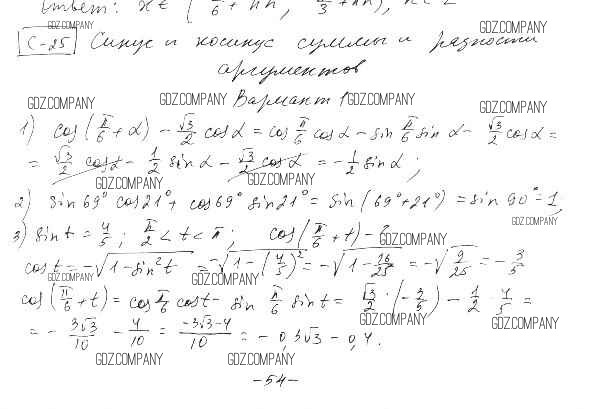 Ответ: x ∈ ( π/6 + πn, π/3 + πn), n ∈ Z
GDZ.COMPANY GDZ.COMPANY
С-25 Синус и косинус суммы и разности
аргументов
GDZ.COMPANY GDZ.COMPANY Вариант 1 GDZ.COMPANY GDZ.COMPANY
1) cos(π/6 + α) − √3/2 cos α = cos π/6 cos α − sin π/6 sin α − √3/2 cos α =
= √3/2 cos α − 1/2 sin α − √3/2 cos α = −1/2 sin α ;
GDZ.COMPANY GDZ.COMPANY
2) sin 69° cos 21° + cos 69° sin 21° = sin(69° + 21°) = sin 90° = 1
GDZ.COMPANY
3) sin t = 4/5 ; π/2 < t < π ; cos(π/6 + t) − ?
GDZ.COMPANY
cos t = −√(1 − sin² t) = −√(1 − (4/5)²) = −√(1 − 16/25) = −√(9/25) = −3/5
GDZ.COMPANY
cos(π/6 + t) = cos π/6 cos t − sin π/6 sin t = √3/2 · (−3/5) − 1/2 · 4/5 =
GDZ.COMPANY GDZ.COMPANY
= − 3√3/10 − 4/10 = (−3√3 − 4)/10 = −0,3√3 − 0,4.
GDZ.COMPANY GDZ.COMPANY
−54−